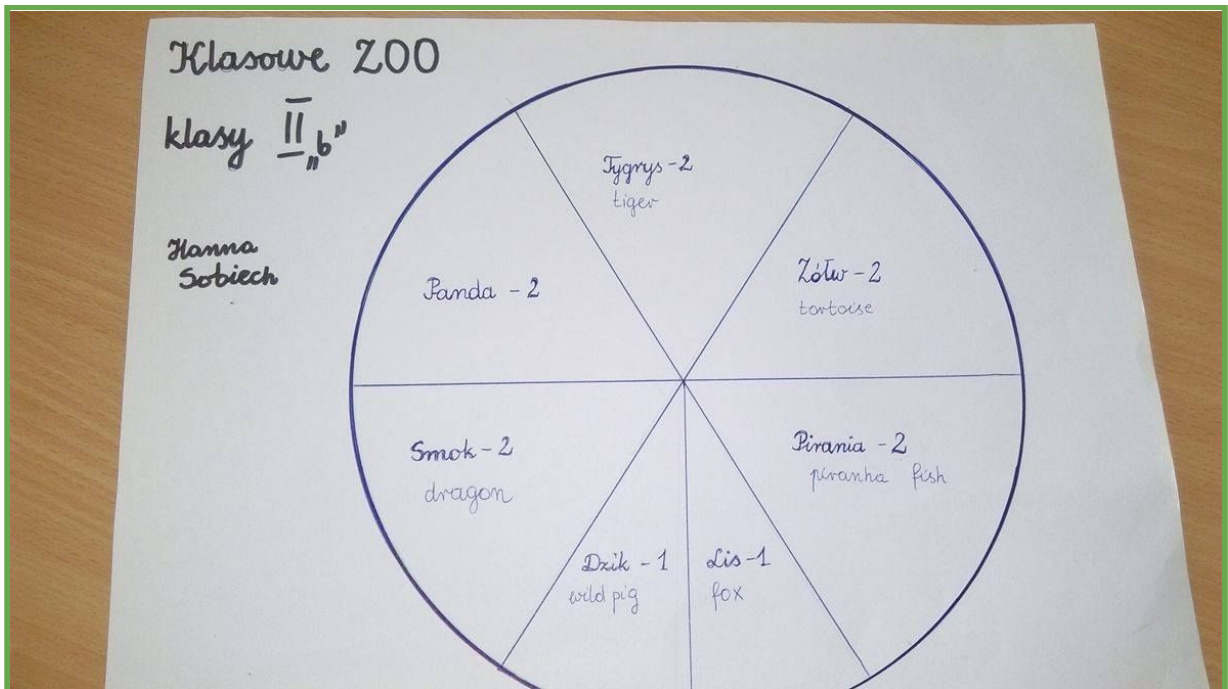 Klasowe ZOO
klasy II „b”
Hanna
Sobiech
Tygrys - 2
tiger
Panda - 2
Żółw - 2
tortoise
Smok - 2
dragon
Pirania - 2
piranha fish
Dzik - 1
wild pig
Lis - 1
fox